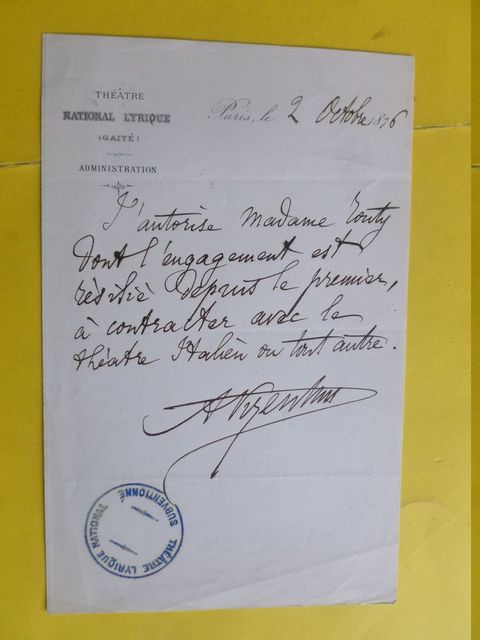 THÉATRE
NATIONAL LYRIQUE
(GAITÉ)
ADMINISTRATION
Paris, le 2 Octobre 1876
J'autorise Madame
Dont l'engagement est
résilié Depuis le premier,
à contracter avec le
théatre Italien ou tout autre.
THÉATRE LYRIQUE NATIONAL
SUBVENTIONNÉ